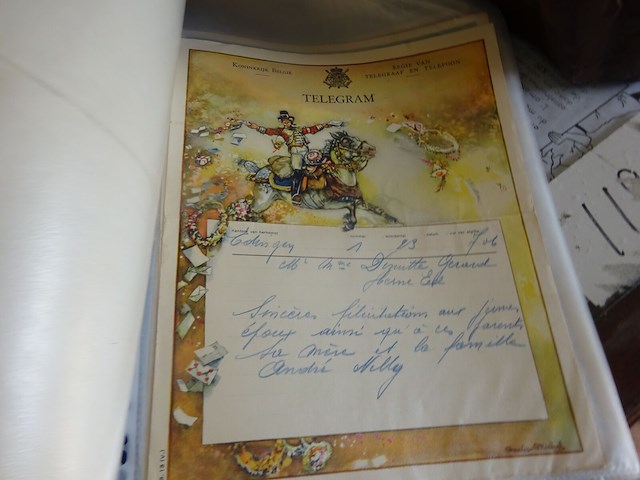 KONINKRIJK BELGIË
REGIE VAN
TELEGRAAF EN TELEFOON
TELEGRAM
Edingen 1 23 706
Mr Mme Gérard
Sincères félicitations aux jeunes
époux ainsi qu'à ces parents
sa mère et la famille
André Nelly
110